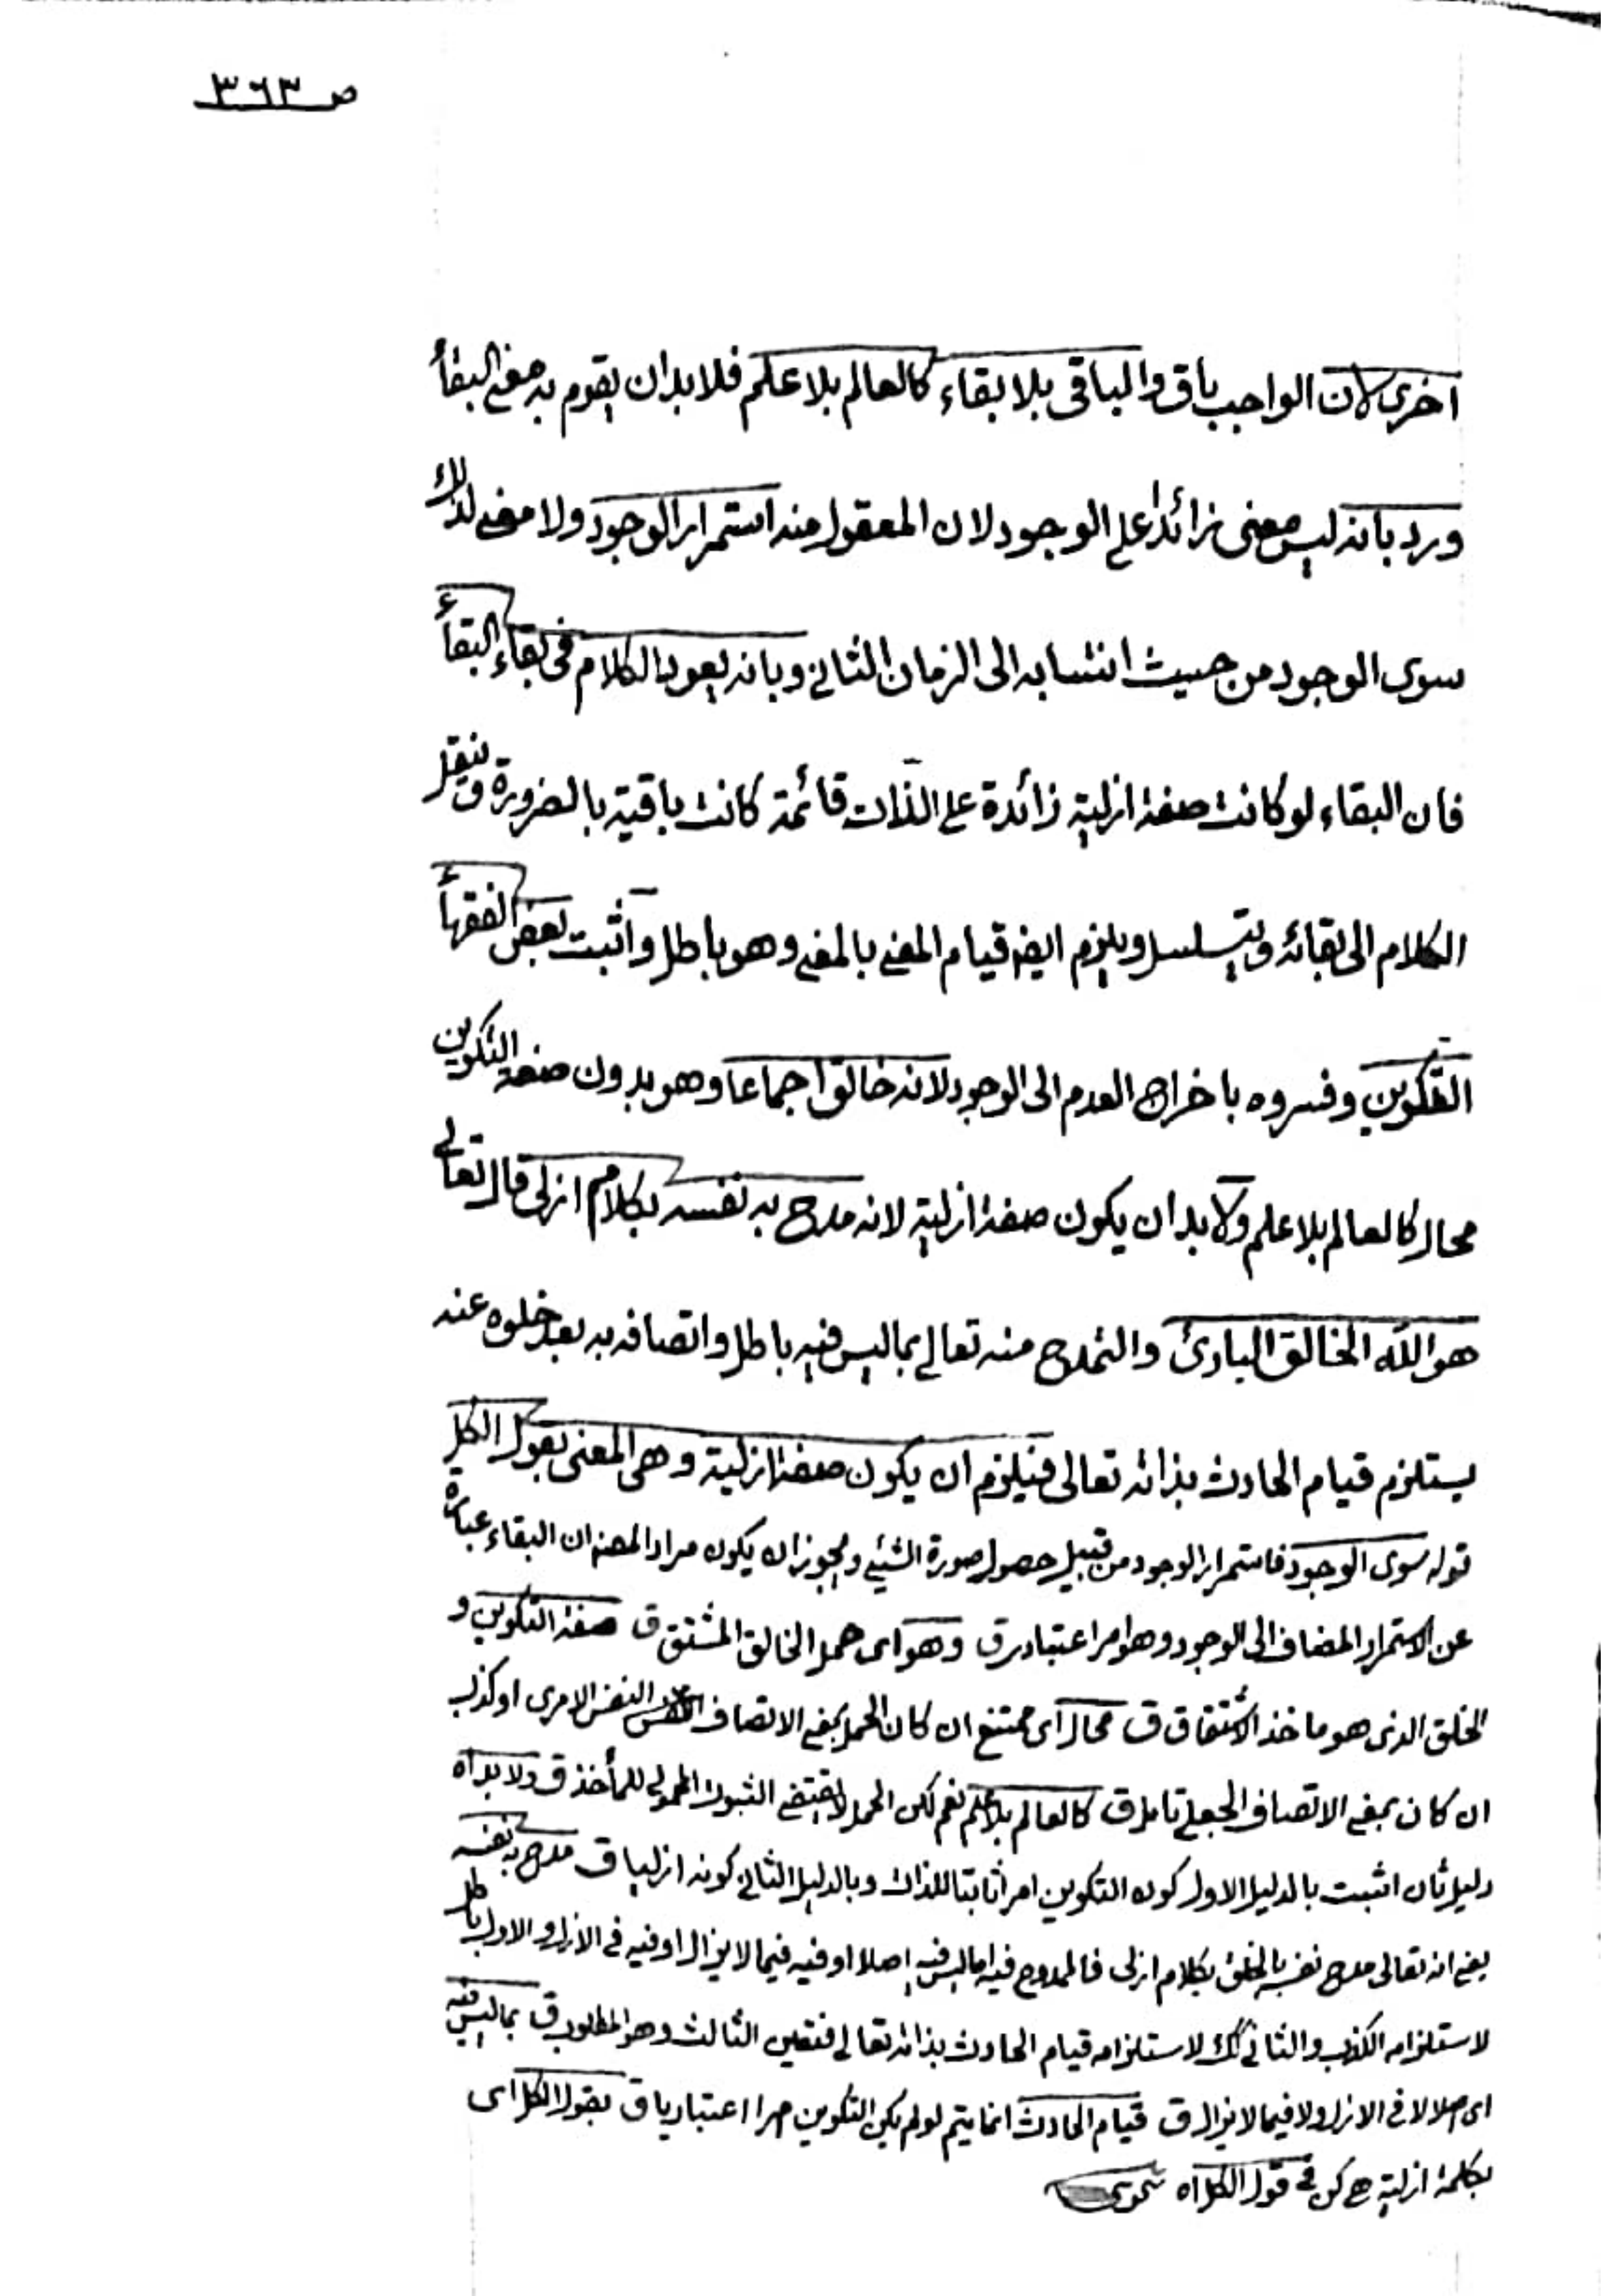 ص ٣٦٣
اخرى لان الواجب باق والباقى بلا بقاء كالعالم بلا علم فلا بد ان يقوم به معنى البقاء
ورد بانه ليس معنى زائدا على الوجود لان المعقول منه استمرار الوجود ولا معنى لذلك
سوى الوجود من حيث انتسابه الى الزمان الثانى وبانه يعود الكلام فى بقاء البقاء
فان البقاء لو كانت صفة ازلية زائدة على الذات قائمة كانت باقية بالضرورة وننقل
الكلام الى بقائه ويتسلسل ويلزم ايضا قيام المعنى بالمعنى وهو باطل واثبت بعض الفقهاء
التكوين وفسروه باخراج العدم الى الوجود لانه خالق اجماعا وهو بدون صفة التكوين
محال كالعالم بلا علم ولا بد ان يكون صفة ازلية لانه مدح به نفسه بكلام ازلى قال تعالى
هو الله الخالق البارئ والتمدح منه تعالى بما ليس فيه باطل واتصافه به بعد خلوه عنه
يستلزم قيام الحادث بذاته تعالى فيلزم ان يكون صفة ازلية وهى المعنى بقول الكل
قوله سوى الوجود فاستمرار الوجود من قبيل حصول صورة الشيئ ويجوز ان يكون مراد المصنف ان البقاء عبارة
عن الاستمرار المضاف الى الوجود وهو امر اعتبارى ق وهو اى حمل الخالق المشتق ق صفة التكوين و
الخلق الذى هو ماخذ الاشتقاق ق محال اى ممتنع ان كان الحمل بمعنى الاتصاف النفس الامرى او كذب
ان كان بمعنى الاتصاف الجعلى تامل ق كالعالم بلا علم نعم لكن الحمل لا يقتضى الثبوت المحمولى للمأخذ ق ولا بد اه
دليل ثان اثبت بالدليل الاول كون التكوين امرا ثابتا للذات وبالدليل الثانى كونه ازليا ق مدح به نفسه
يعنى انه تعالى مدح نفسه بالخلق بكلام ازلى فالممدوح فيه اما ليس فيه اصلا او فيه فيما لا يزال او فيه فى الازل والاول باطل
لاستلزامه الكذب والثانى كك لاستلزامه قيام الحادث بذاته تعالى فتعين الثالث وهو المطلوب ق بما ليس فيه
اى اصلا لا فى الازل ولا فيما لا يزال ق قيام الحادث انما يتم لو لم يكن التكوين امرا اعتباريا ق بقول الكل اى
بكلمة ازلية هى كن فى قول الكل اه